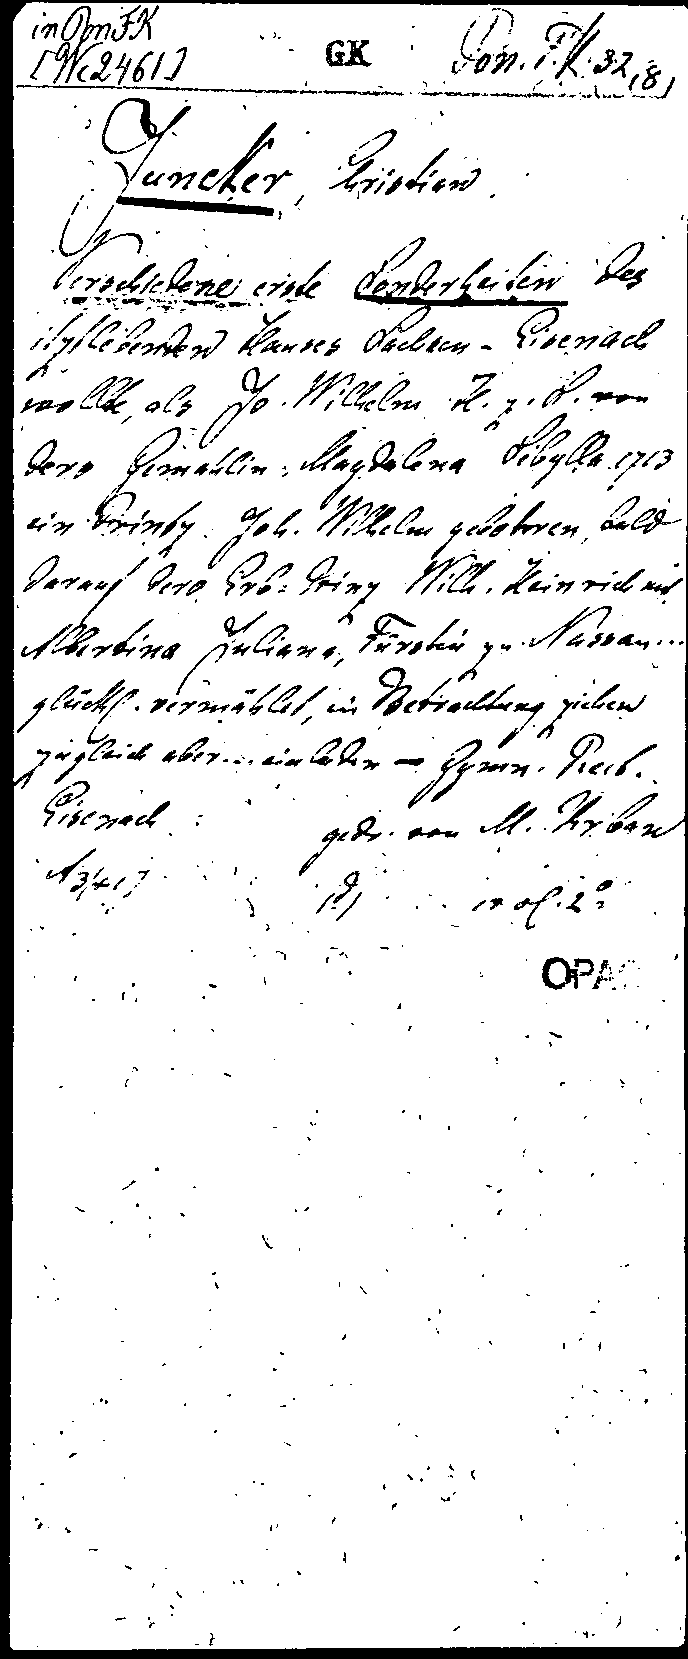 in Don FK
[Wc 2461]
GK
Don. F. K. 32,(8)
Juncker, Cristian.
Verschiedene erste Sonderheiten des
itztlebenden Hauses Sachsen-Eisenach
wollte, als Jo. Wilhelm H. z. S. von
dero Gemahlin, Magdalena Sibylla 1713
ein Printz Joh. Wilhelm gebohren, bald
darauf dero Erb-Prinz Wilh. Heinrich mit
Albertina Juliana, Fürstin zu Nassau...
glückl. vermählet, in Betrachtung ziehen
zugleich aber... einladen — Gymn. Rect.
Eisenach gedr. von M. Urban
2°
OPAC